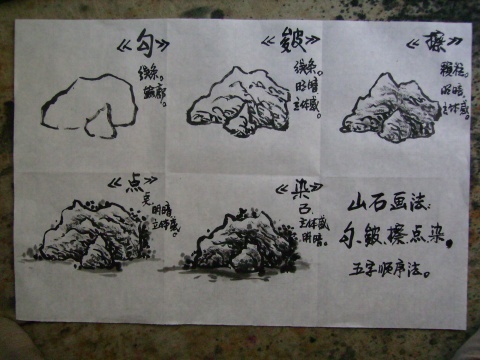 《勾》
线条。
轮廓。
《皴》
线条。
明暗
立体感。
《擦》
颗粒。
明暗。
立体感。
《点》
明暗
立体感。
《染》
立体感
明暗。
山石画法:
勾、皴、擦、点、染。
五字顺序法。